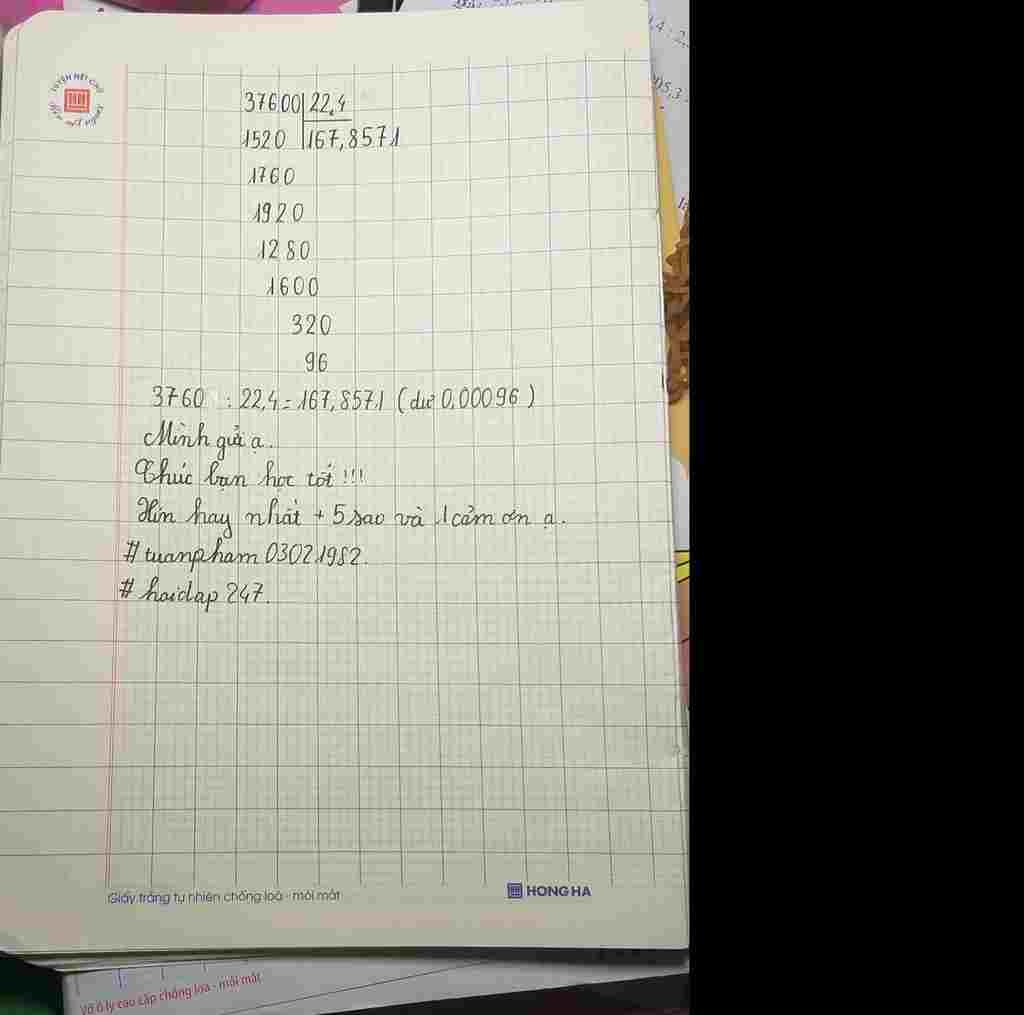 37600 22,4
1520 167,8571
1760
1920
1280
1600
320
96
3760 : 22,4 = 167,8571 (dư 0,00096)
Mình gửi ạ.
Chúc bạn học tốt !!!
Xin hay nhất + 5 sao và 1 cảm ơn ạ.
#tuanpham03021982.
#hoidap247.
Giấy trắng tự nhiên chống loá - mỏi mắt
HONG HA
Vở ô ly cao cấp chống loá - mỏi mắt